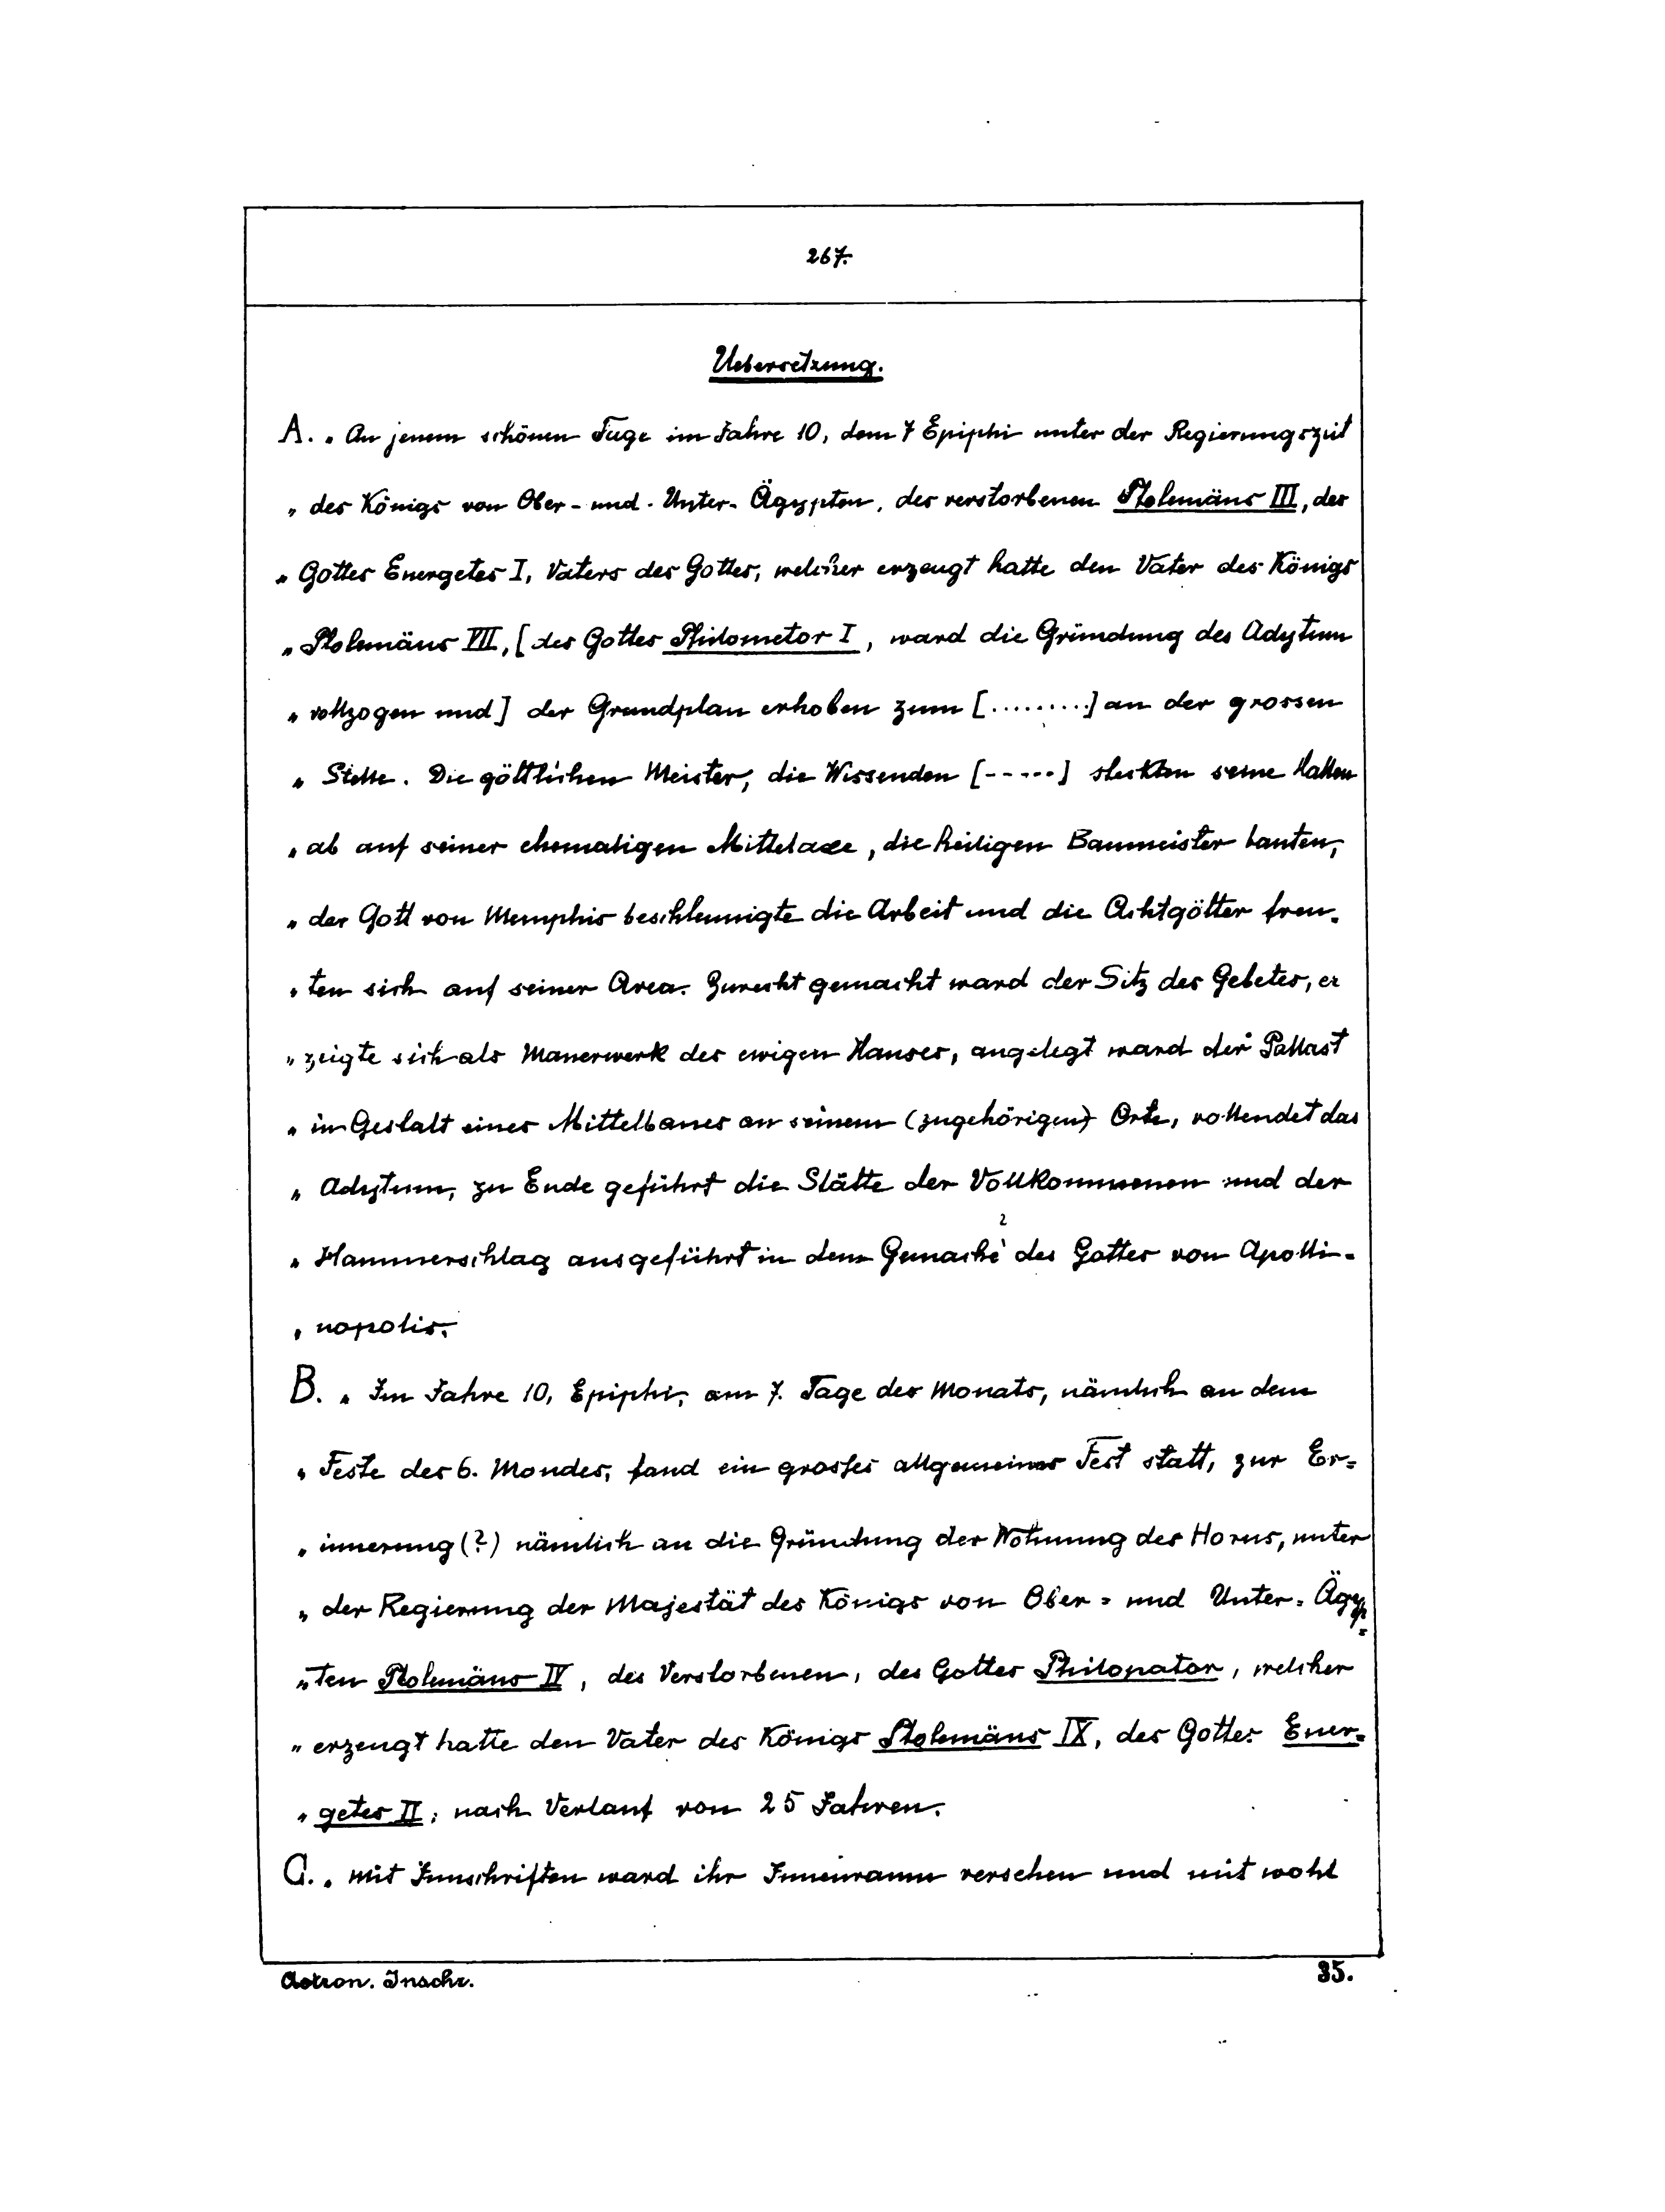 267.
Uebersetzung.
A. „ An jenem schönen Tage im Jahre 10, dem 7 Epiphi unter der Regierungszeit
„ des Königs von Ober- und- Unter- Ägypten, des verstorbenen Ptolemäus III, des
„ Gottes Euergetes I, Vaters des Gottes, welcher erzeugt hatte den Vater des Königs
„ Ptolemäus VII, [des Gottes Philometor I, ward die Gründung des Adytum
„ vollzogen und] der Grundplan erhoben zum [.........] an der grossen
„ Stelle. Die göttlichen Meister, die Wissenden [-----] steckten seine Hallen
„ ab auf seiner ehemaligen Mittelaxe, die heiligen Baumeister bauten,
„ der Gott von Memphis beschleunigte die Arbeit und die Achtgötter freu-
„ ten sich auf seiner Area. Zurecht gemacht ward der Sitz des Gebetes, er
„ zeigte sich als Mauerwerk des ewigen Hauses, angelegt ward der Pallast
„ in Gestalt eines Mittelbaues an seinem (zugehörigen) Orte, vollendet das
„ Adytum, zu Ende geführt die Stätte der Vollkommenen und der
„ Hammerschlag ausgeführt in dem Gemache ² des Gottes von Apolli-
„ nopolis.
B. „ Im Jahre 10, Epiphi, am 7. Tage des Monats, nämlich an dem
„ Feste des 6. Mondes, fand ein grosses allgemeines Fest statt, zur Er=
„ innerung (?) nämlich an die Gründung der Wohnung des Horus, unter
„ der Regierung der Majestät des Königs von Ober= und Unter= Ägyp=
„ ten Ptolemäus IV, des Verstorbenen, des Gottes Philopator, welcher
„ erzeugt hatte den Vater des Königs Ptolemäus IX, des Gottes Euer=
„ getes II, nach Verlauf von 25 Jahren.
C. „ Mit Innschriften ward ihr Innenraum versehen und mit wohl
Astron. Inschr.
35.